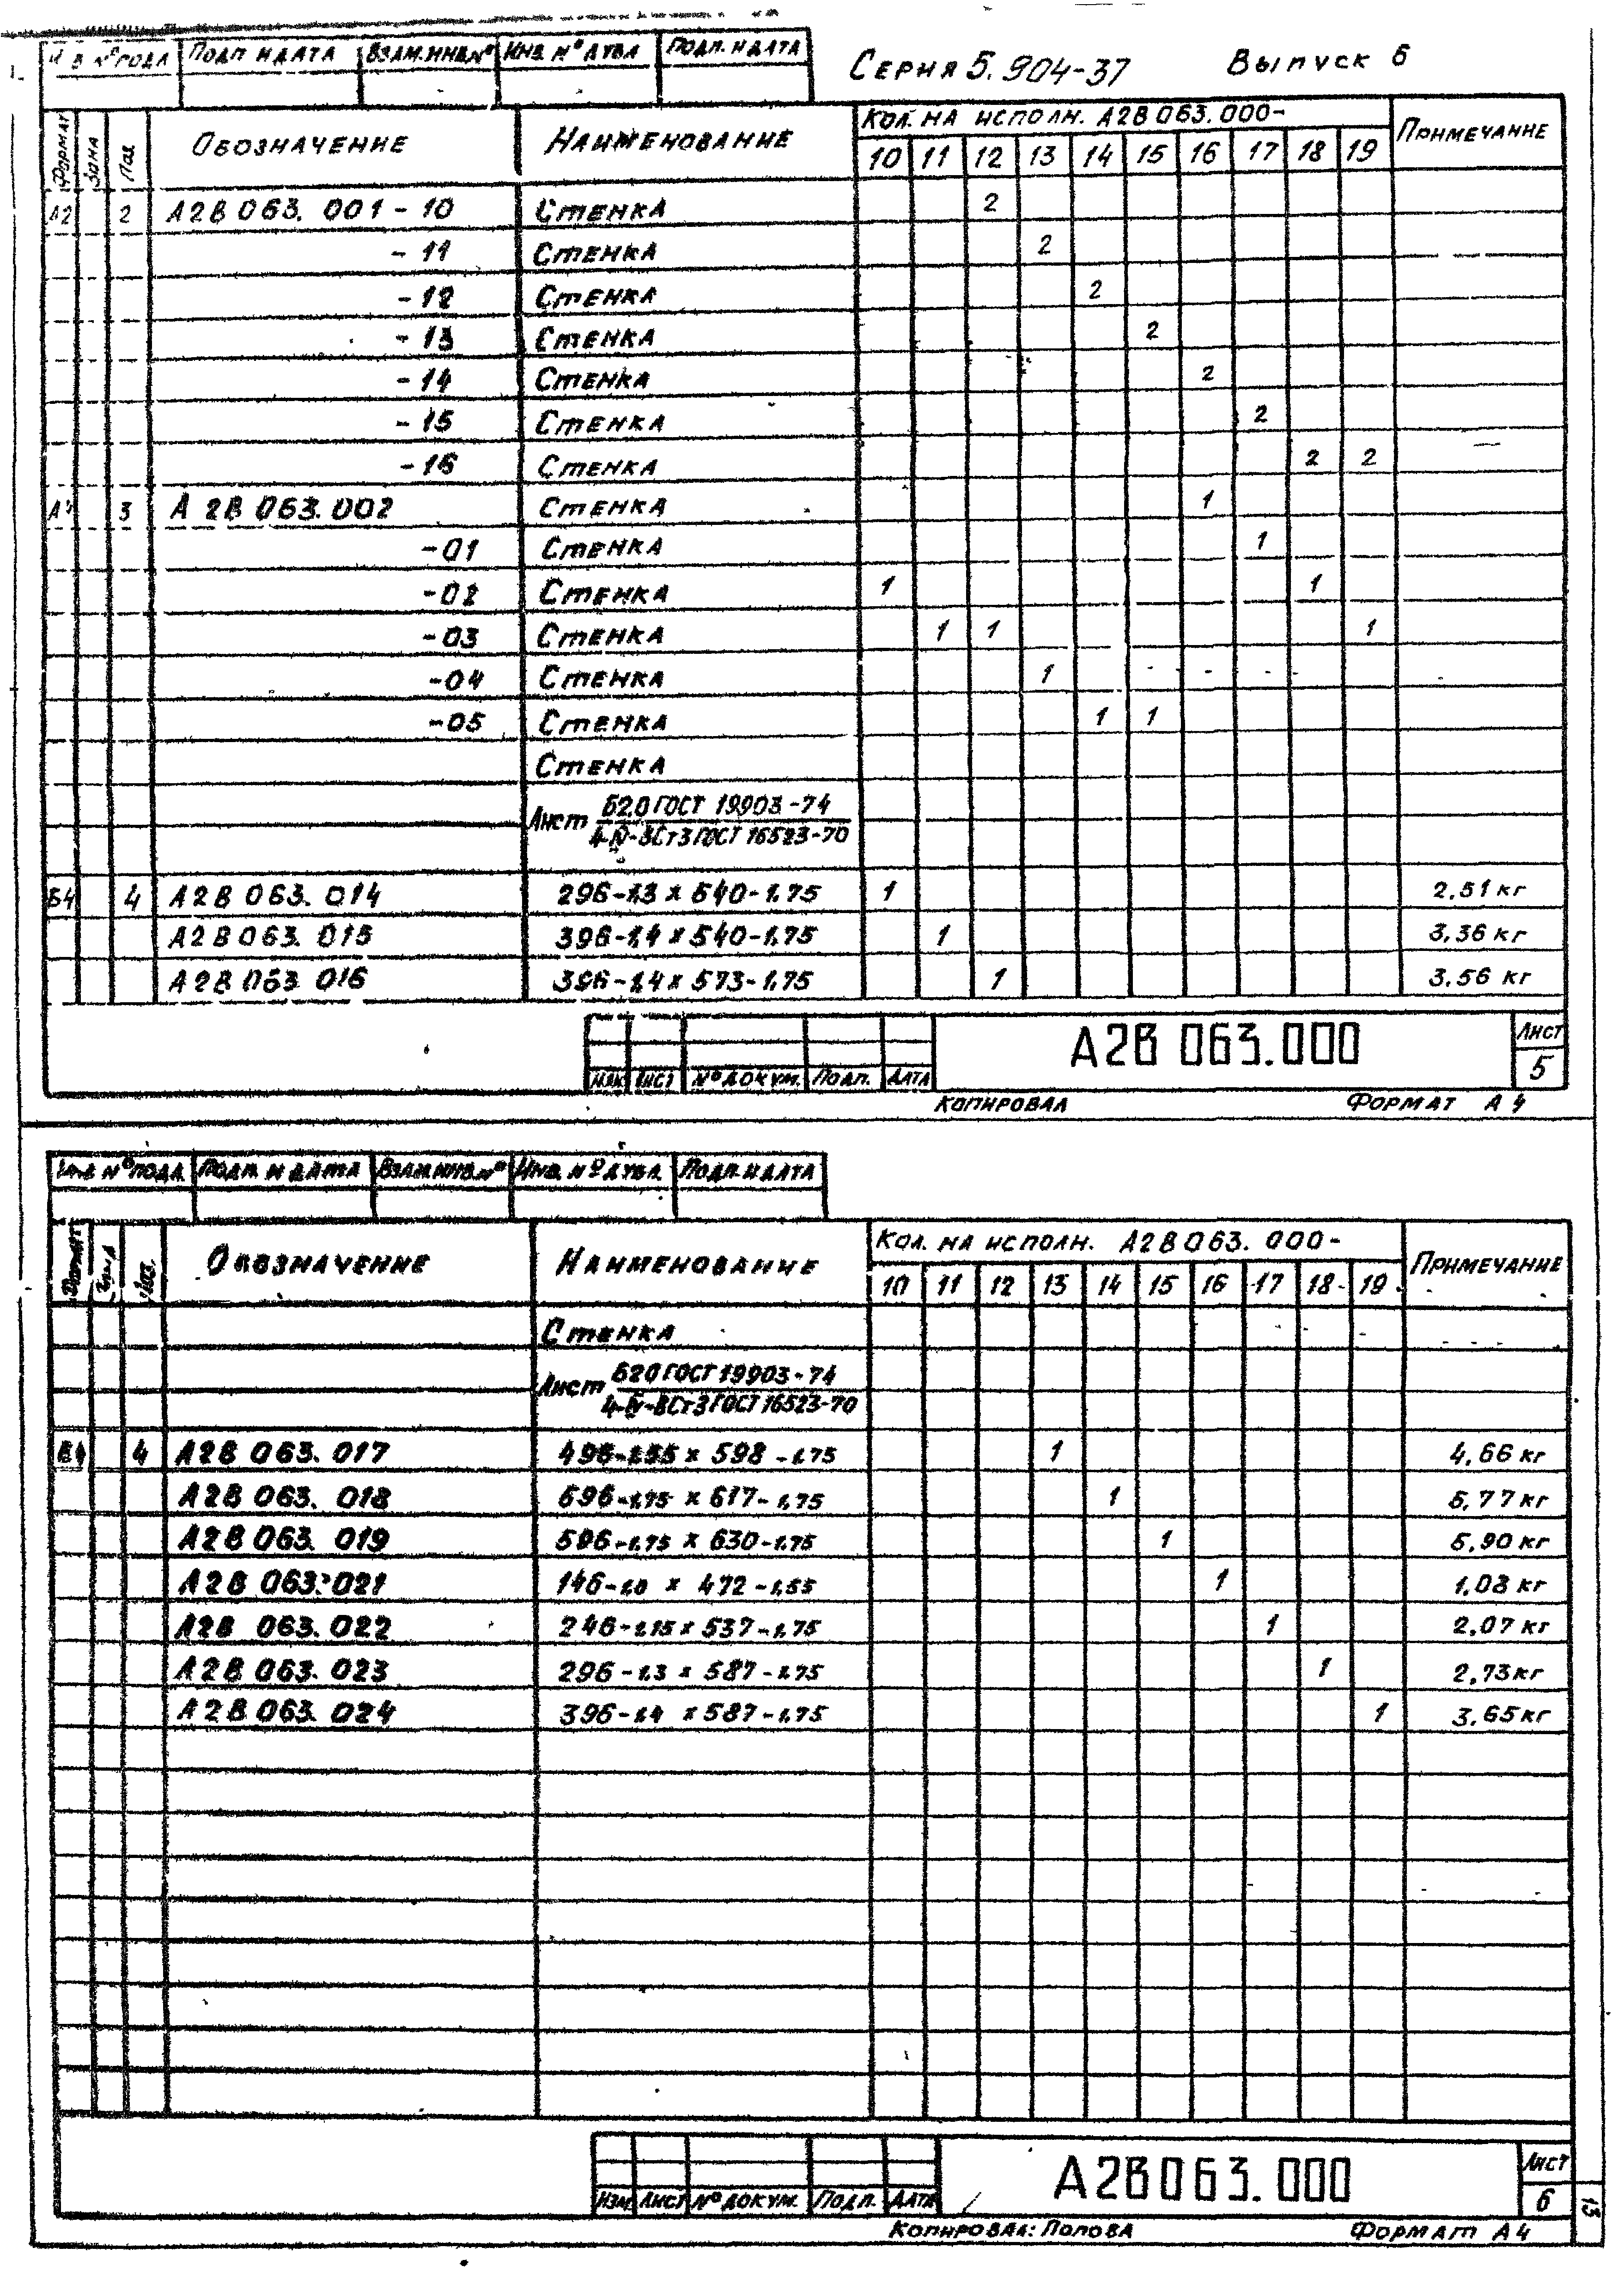 Серия 5.904-37 Выпуск 6
Подп и дата Взам.инв.№ Инв №дубл Подп. и дата
Формат Зона Обозначение Наименование Кол. на исполн. А2В 063.000- Примечание
10 11 12 13 14 15 16 17 18 19
А2 2 А2В 063. 001 - 10 Стенка 2
- 11 Стенка 2
- 12 Стенка 2
- 13 Стенка 2
- 14 Стенка 2
- 15 Стенка 2
- 16 Стенка 2 2
3 А 2В 063.002 Стенка 1
-01 Стенка 1
-02 Стенка 1 1
-03 Стенка 1 1 1
-04 Стенка 1
-05 Стенка 1 1
Стенка
Лист Б2.0 ГОСТ 19903-74
4-IV-ВСт3 ГОСТ 16523-70
Б4 4 А2В 063. 014 296-1,3 х 540-1,75 1 2,51 кг
А2В 063. 015 396-1,4 х 540-1,75 1 3,36 кг
А2В 063. 016 396-1,4 х 573-1,75 1 3,56 кг
А2В 063.000 Лист
5
Изм Лист №докум. Подп. Дата
Копировал Формат А4
Инв №подл Подп. и дата Взам.инв.№ Инв. №дубл. Подп. и дата
Формат Зона Поз. Обозначение Наименование Кол. на исполн. А2В 063. 000- Примечание
10 11 12 13 14 15 16 17 18 19
Стенка
Лист Б2.0 ГОСТ 19903-74
4-IV-ВСт3 ГОСТ 16523-70
Б4 4 А2В 063. 017 496-1,55 х 598-1,75 1 4,66 кг
А2В 063. 018 596-1,75 х 617-1,75 1 5,77 кг
А2В 063. 019 596-1,75 х 630-1,75 1 5,90 кг
А2В 063. 021 146-1,0 х 472-1,55 1 1,08 кг
А2В 063. 022 246-1,15 х 537-1,75 1 2,07 кг
А2В 063. 023 296-1,3 х 587-1,75 1 2,73 кг
А2В 063. 024 396-1,4 х 587-1,75 1 3,65 кг
А2В 063.000 Лист
6
Изм Лист №докум. Подп. Дата
Копировал: Попова Формат А4
13